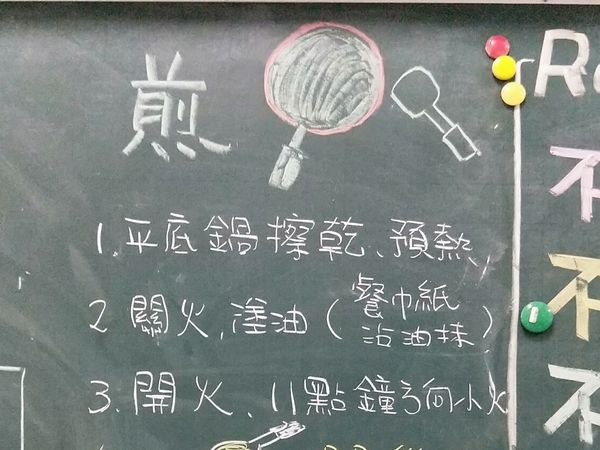 煎
1.平底鍋擦乾、預熱
2 關火,塗油(餐巾紙沾油抹)
3.開火、11點鐘方向小火
R
不
不
不